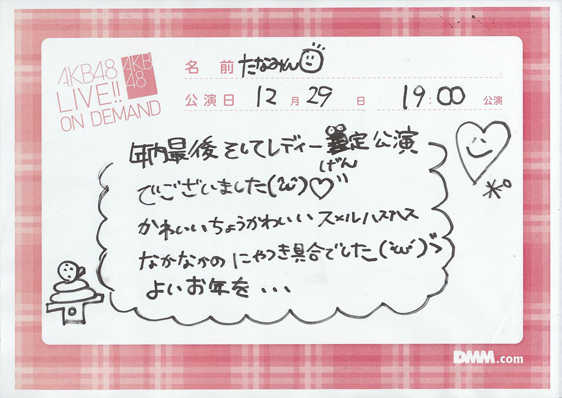 AKB48
LIVE!!
ON DEMAND
AKB
48
名 前 たなみん
公演日 12月29日 19:00公演
年内最後そしてレディー定公演
げん
でございました(ω)♡"
かわいいちょうかわいいスメルハスハス
なかなかのにやつき具合でした(ω)
よいお年を...
DMM.com